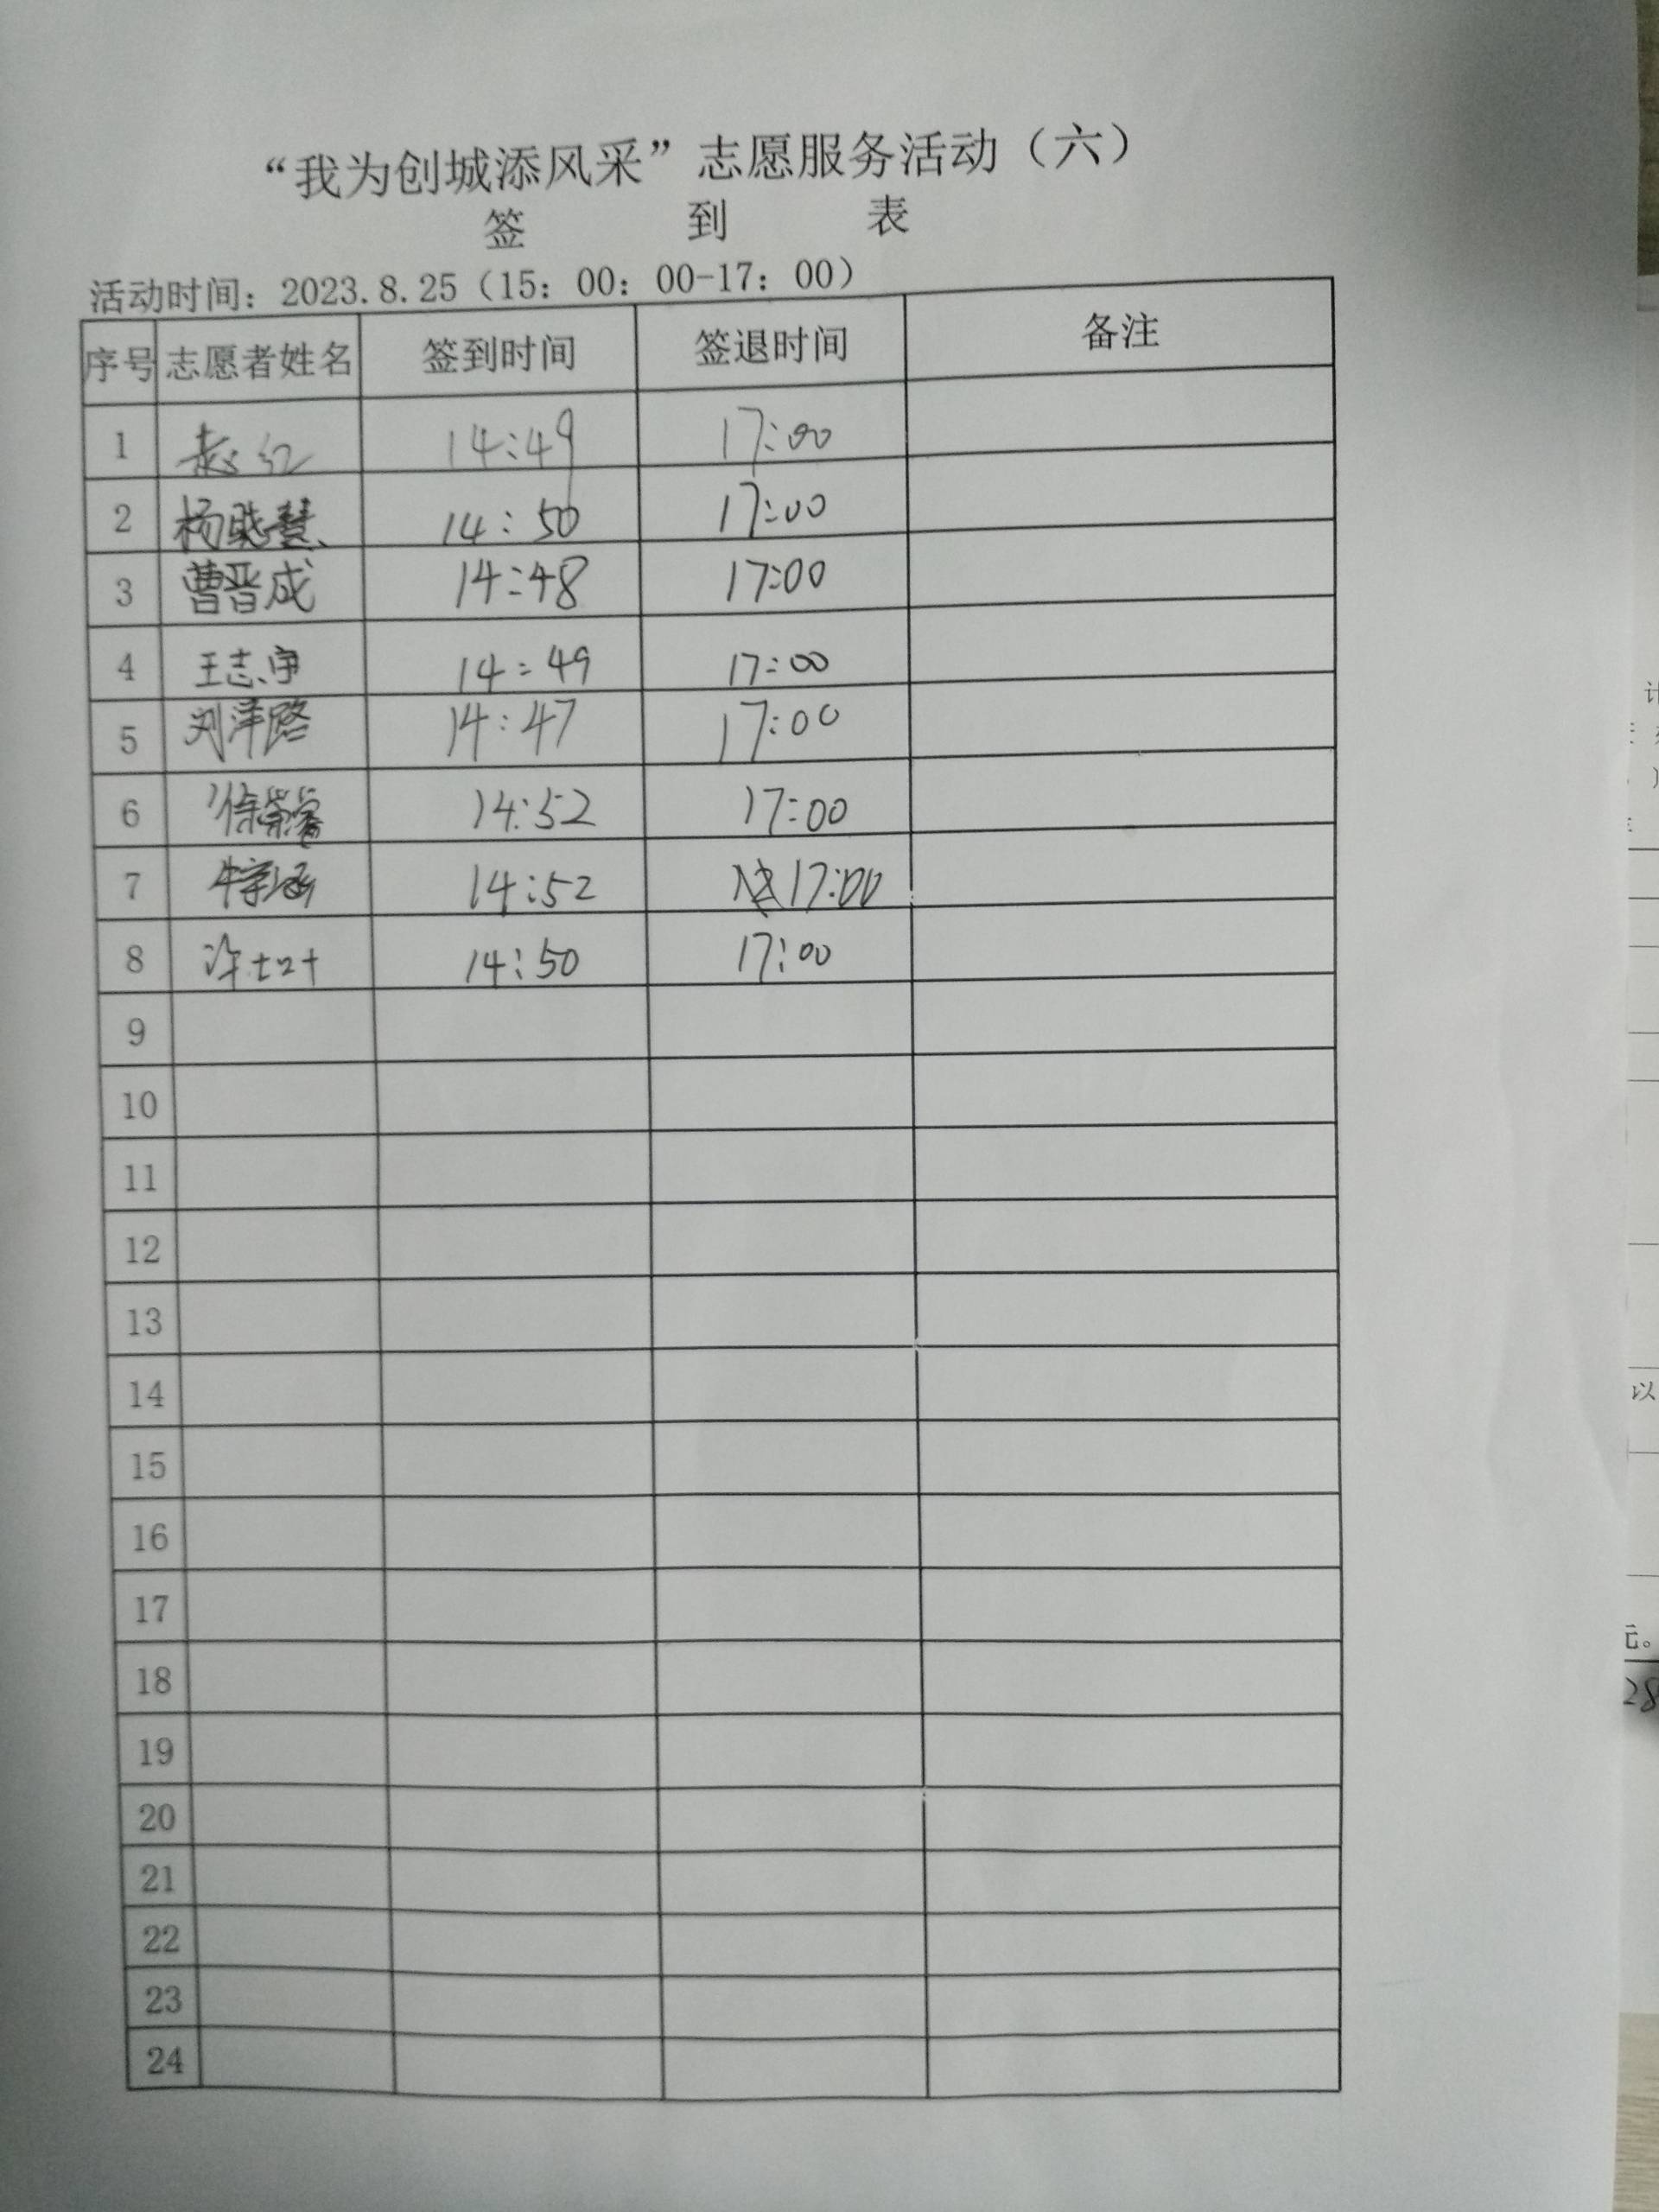 “我为创城添风采”志愿服务活动（六）
签 到 表
活动时间：2023.8.25（15：00：00-17：00）
序号 志愿者姓名 签到时间 签退时间 备注
1 赵红 14:49 17:00
2 杨晓慧 14:50 17:00
3 曹晋成 14:48 17:00
4 王志宇 14:49 17:00
5 刘洋路 14:47 17:00
6 徐 14:52 17:00
7 14:52 17:00
8 许 14:50 17:00
9
10
11
12
13
14
15
16
17
18
19
20
21
22
23
24
计
以
元。
28